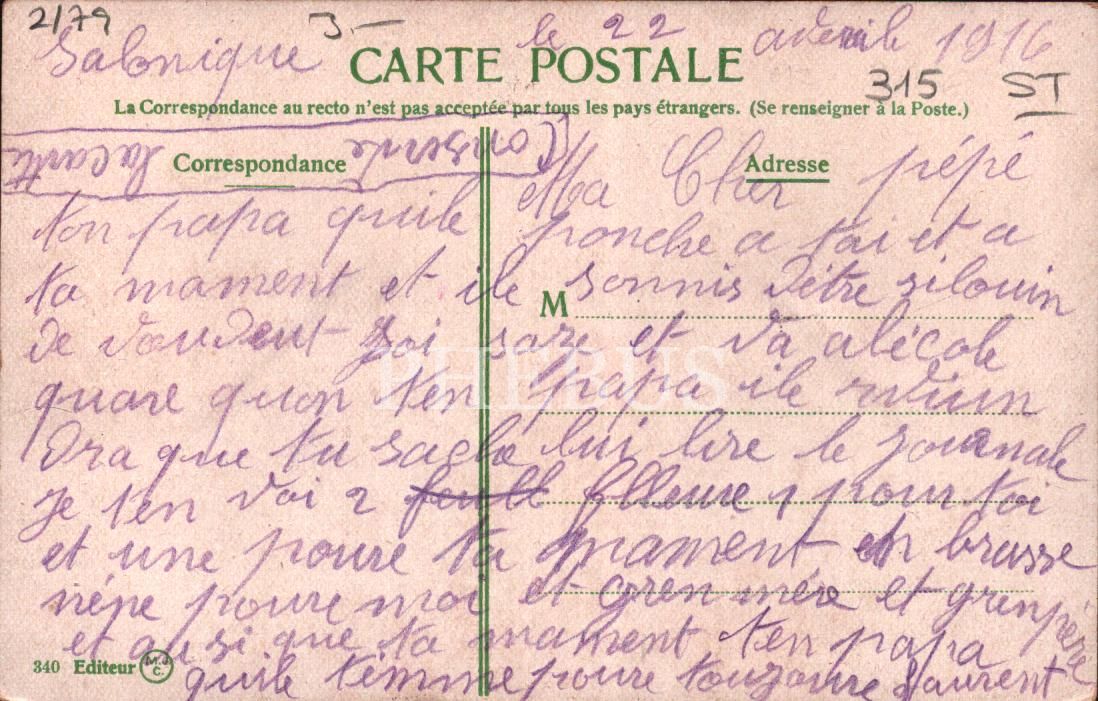 2/79 3.-
Salonique le 22 avril 1916
CARTE POSTALE
315 ST
La Correspondance au recto n'est pas acceptée par tous les pays étrangers. (Se renseigner à la Poste.)
Conserve la carte
Correspondance Adresse
Ma Cher pépé
ton papa quile ponche a toi et a
ta mament et ile sonnis d'être silouin
M
de vou soi saze et va alécole
quare quon ten papa ile
dra que tu sache lui lire le journale
je ten voi 2 fleure 1 pour toi
et une poure ta mament en brasse
néne poure moi et gren mère et grenpère
et ausi que ta mament ten papa
quile témme poure touzoure Laurent
340 Editeur M.J.C.
PHEBUS